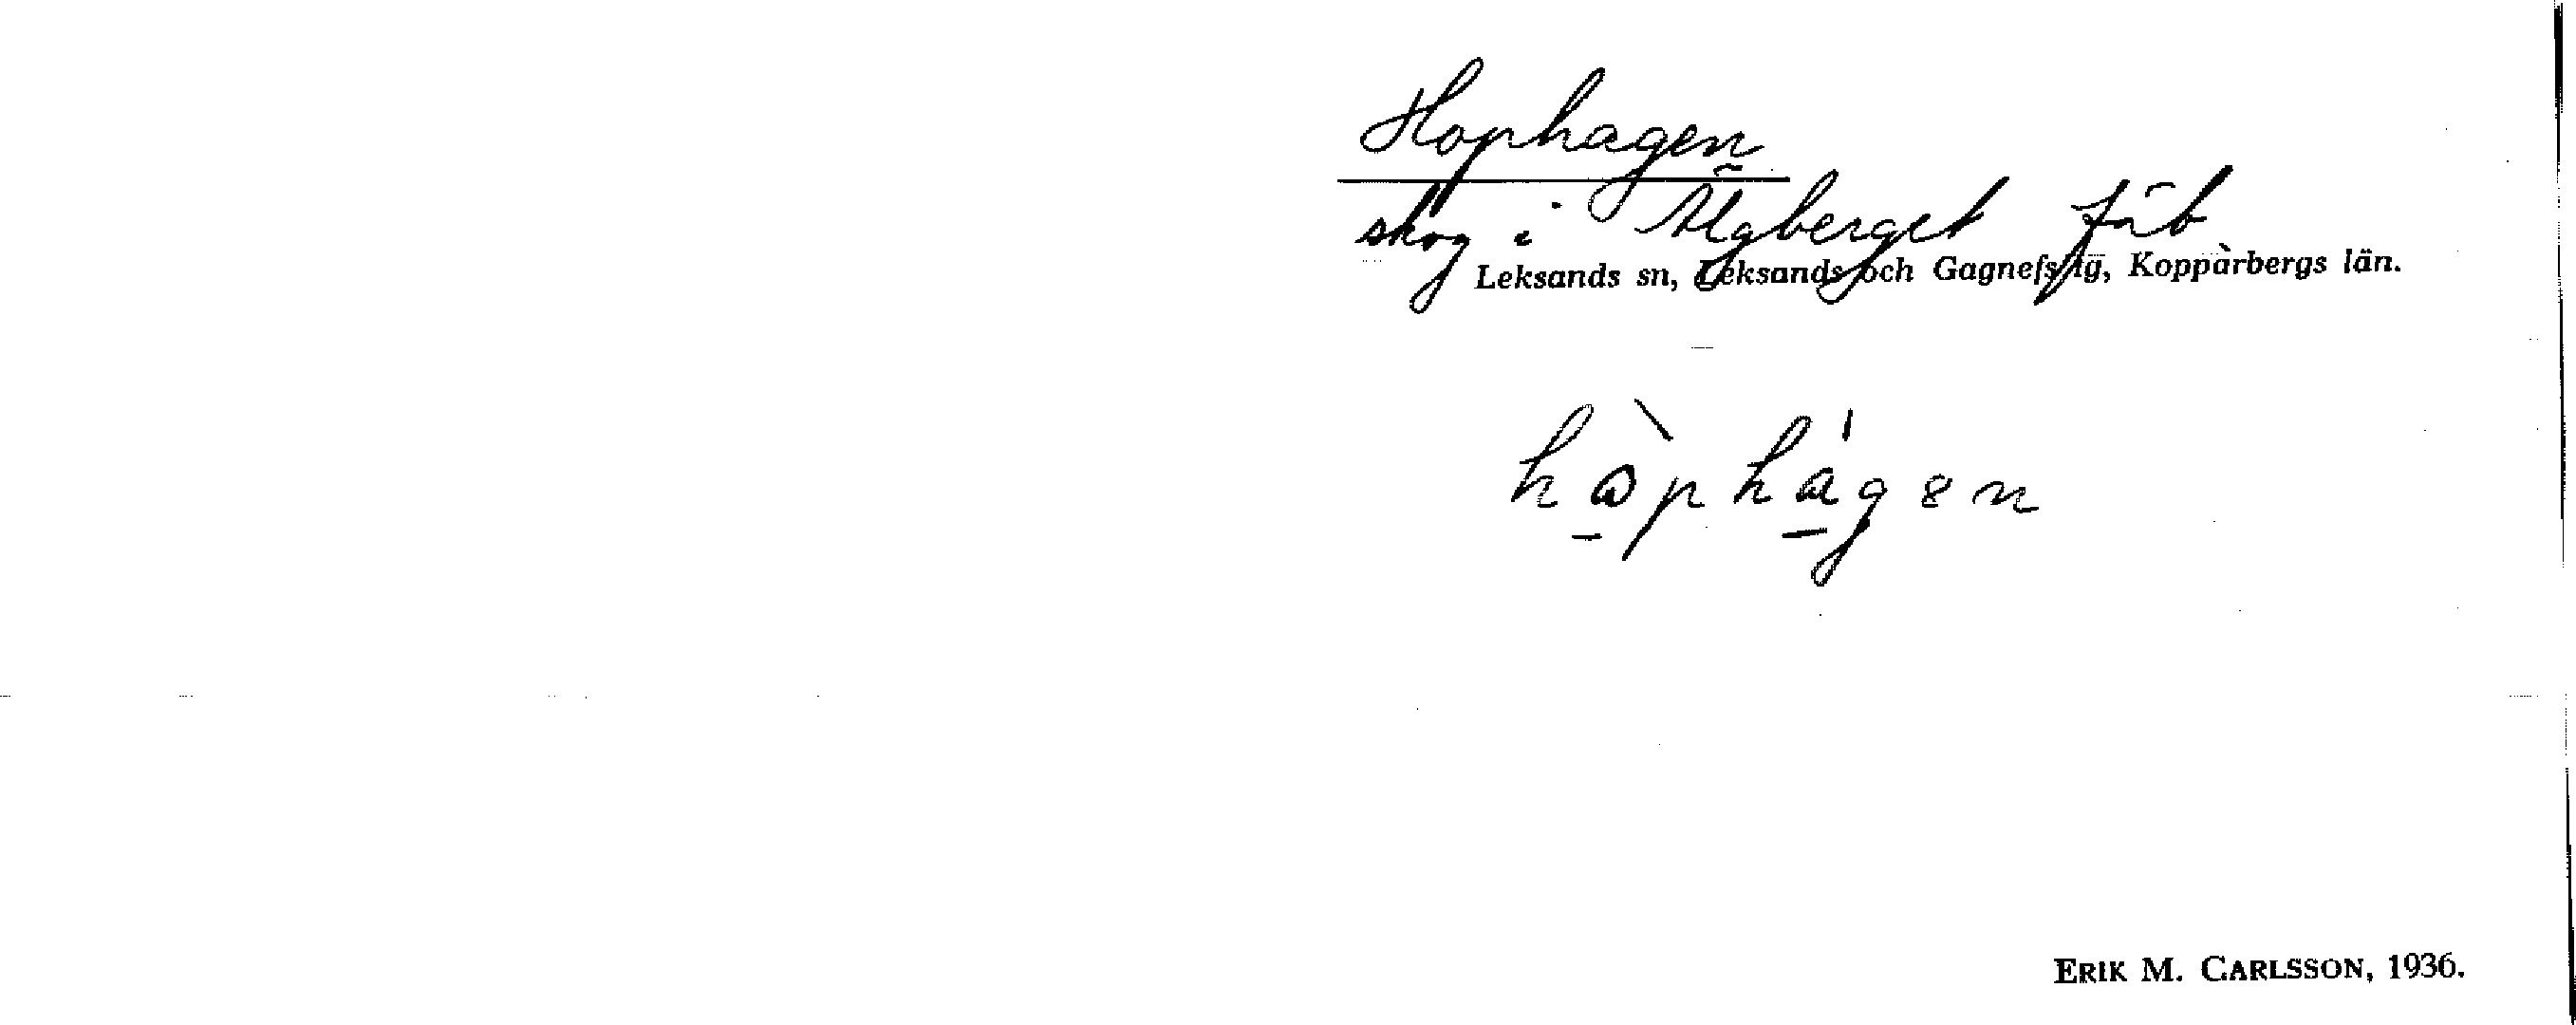 Hophagen
skog i Älgberget fäb
Leksands sn, Leksands och Gagnefs tg, Kopparbergs län.
hòphágen
ERIK M. CARLSSON, 1936.